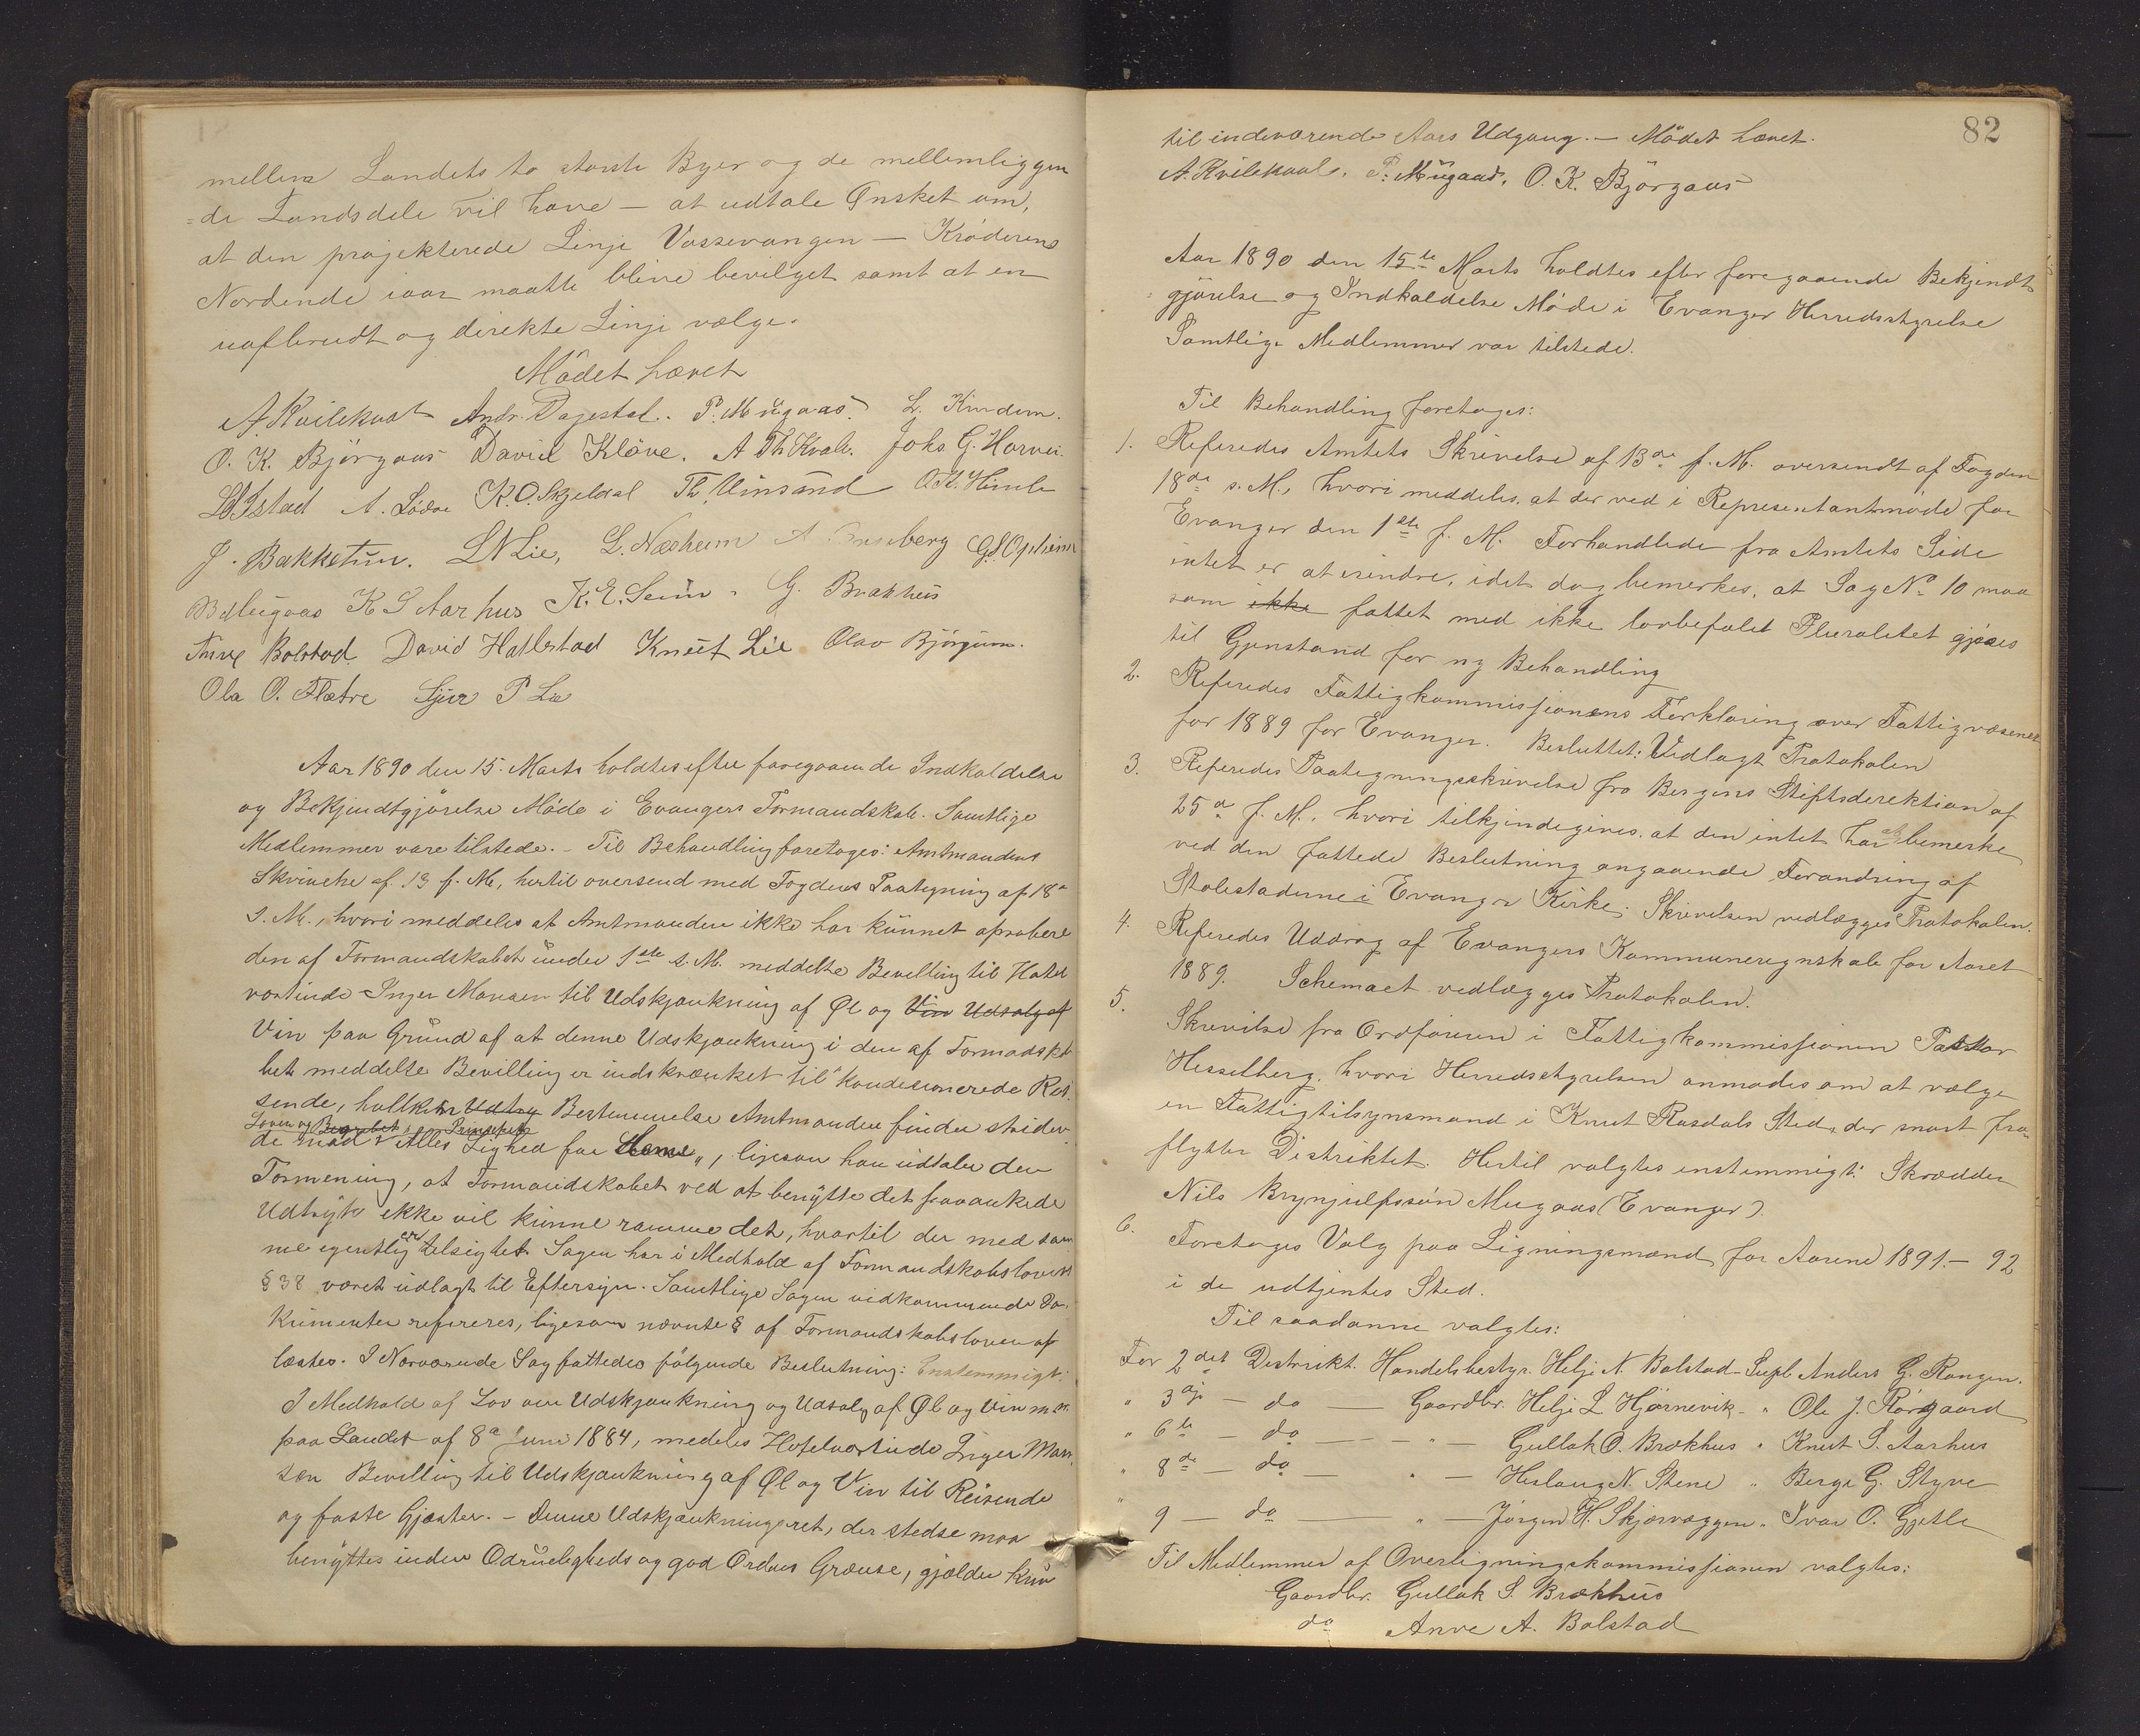 mellem Landets to største Byer og de mellemliggen
=de Landsdele vil have — at udtale Ønsket om,
at den projekterede Linje Vossevangen — Krøderens
Nordende iaar maatte blive bevilget samt at en
uafbrudt og direkte Linje vælges.
Mødet hævet
A. Kvilekval Andr. Dagestad. P. Mügaas. L. Kindem.
O. K. Bjørgaas David Kløve. A Th Kvale. Johs. G. Horvei.
Istad A. Lødve K. O. Skjeldal Th. Vinsand O. K. Himle
J. Bakketün. L N Lie, L. Næsheim berg G. S. Opheim
K S Aarhus K. E. Seim. G. Brakhus
Anve Bolstad David Hallestad Knüt Lie Olav Bjørgum.
Ola O. Flætre Sjur P Lie
Aar 1890 den 15. Marts holdtes efter foregaaende Indkaldelse
og Bekjendtgjørelse Møde i Evangers Formandskab. Samtlige
Medlemmer vare tilstede. – Til Behandling foretoges: Amtmandens
Skrivelse af 13 f. M., hertil oversend med Fogdens Paategning af 18de
s. M., hvori meddeles at Amtmanden ikke har künnet aprobere
den af Formandskabet ünder 1ste s. M. meddelte Bevilling til Hotel
vertinde Inger Monsen til Udskjænkning af Øl og Vin Udsalg af
Vin paa Gründ af at denne Udskjænkning i den af Formadska
bet meddelte Bevilling er indskrænket til "kondesionerede Rei
sende, hvilken Udtry Bestemmelse Amtmanden finder striden
Loven og Begrebet Princippet
de mod "Alles Lighed for Loven", ligesom han üdtaler den
Formening, at Formandskabet ved at benytte det paaankede
Udtryk ikke vil künne ramme det, hvortil der med sam
me egentlig er tilsigtet. Sagen har i Medhold af Formandskabslovens
§ 38 været üdlagt til Eftersyn. Samtlige Sagen vedkommende Do=
kümenter refereres, ligesom nævnte § af Formandskabsloven op
læstes. I Nærværende Sag fattedes følgende Beslutning: Enstemmigt:
I Medhold af Lov om Udskjænkning og Udsalg af Øl og Vin m. m.
paa Landet af 8de Juni 1884, medeles Hotelvertinde Inger Mon
sen Bevilling til Udskjænkning af Øl og Vin til Reisende
og faste Gjæster. – Denne Udskjænkningsret, der stedse maa
benyttes inden Ædrueligheds og god Ordens Grænse, gjælder kün
82
til indeværende Aars Udgang. — Mødet hævet.
A. Kvilekval. P. Mügaas, O. K. Bjørgaas
Aar 1890 den 15de Marts holdtes efter foregaaende Bekjendt
gjørelse og Indkaldelse Møde i Evanger Herredsstyrelse
Samtlige Medlemmer var tilstede.
Til Behandling foretoges:
1. Referedes Amtets Skrivelse af 13de f. M. oversendt af Fogden
18de s. M., hvori meddeles, at der ved i Representantmøde for
Evanger den 1ste f. M. Forhandlede fra Amtets Side
intet er at erindre, idet dog bemerkes, at Sag No 10 maa
som ikke fattet med ikke lovbefalet Pluralitet gjøres
til Gjenstand for ny Behandling
2. Referedes Fattigkommissionens Forklaring over Fattigvæsenet
for 1889 for Evanger. Besluttet: Vedlagt Protokolen
3. Referedes Paategningsskrivelse fra Bergens Stiftsdirektion af
25de f. M. hvori tilkjendegives, at den intet har at bemerke
ved den fattede Beslutning angaaende Forandring af
Stolestaderne i Evanger Kirke. Skrivelsen vedlægges Protokolen.
4. Referedes Uddrag af Evangers Kommuneregnskab for Aaret
1889. Schemaet vedlægges Protokolen.
5. Skrivelse fra Ordføreren i Fattigkommissionen Pastor
Hesselberg, hvori Herredsstyrelsen anmodes om at vælge
en Fattigtilsynsmand i Knut Rasdals Sted, der snart fra=
flytter Distriktet. Hertil valgtes enstemmigt: Skrædder
Nils Brynjulfssøn Mugaas (Evanger).
6. Foretoges Valg paa Ligningsmænd for Aarene 1891 – 92
i de udtjentes Sted.
Til saadanne valgtes:
For 2det Distrikt. Handelsbestyr. Helje N. Bolstad Supl. Anders G. Rongen.
" 3dje — do — Gaardbr. Helje L Hjørnevik — " Ole J. Rørgaard
" 6te — do — " — Gullak O. Brækhus " Knut S. Aarhus
" 8de — do " — Herlaug N. Stene " Berge G. Styve
" 9 — do — " — Jørgen H. Skjærvæggen " Ivar O. Gjetle
Til Medlemmer af Overligningskommissionen valgtes:
Gaardbr. Gullak S. Brækhüs
do Anve A. Bolstad